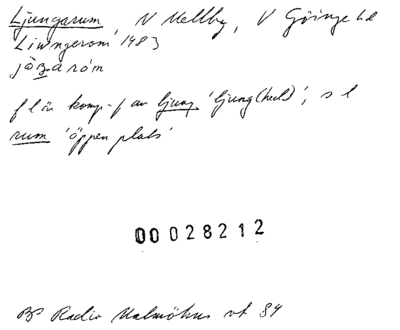 Ljungarum, N Mellby, V Göinge hd
Liwngerom 1483
jôŋaróm
f l är komp-f av ljung 'ljung(hed)'; s l
rum 'öppen plats'
00028212
BP Radio Malmöhus vt 84